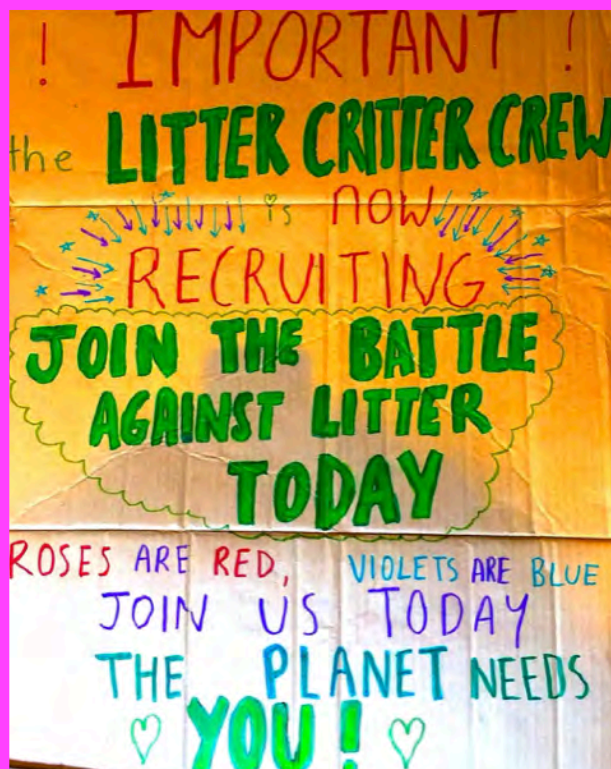 ! IMPORTANT !
the LITTER CRITTER CREW
is NOW
RECRUITING
JOIN THE BATTLE
AGAINST LITTER
TODAY
ROSES ARE RED, VIOLETS ARE BLUE
JOIN US TODAY
THE PLANET NEEDS
YOU!